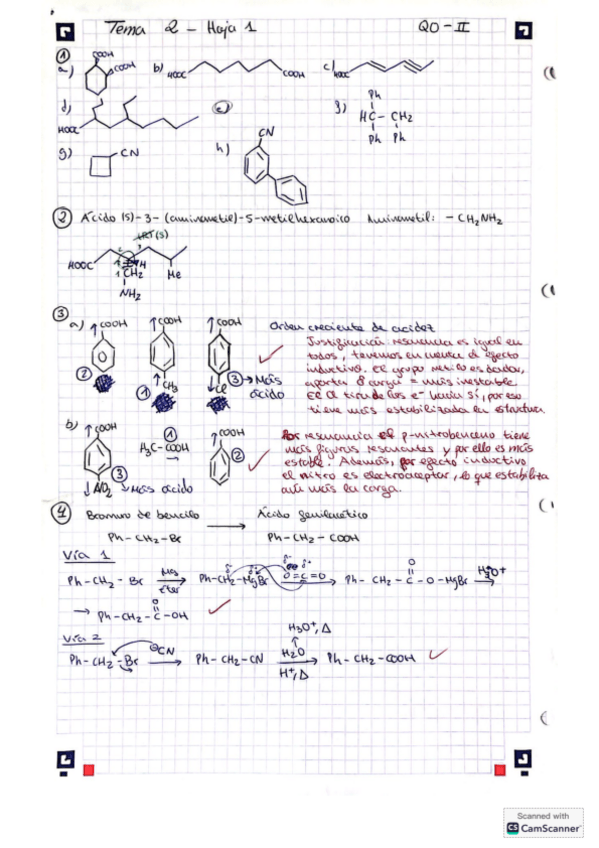 Tema 2 - Hoja 1 QO-II
① a) COOH COOH b) HOOC COOH c) HOOC
d) HOOC e) f) Ph HC - CH2 Ph Ph
g) CN h) CN
② Ácido (S)-3-(aminometil)-5-metilhexanoico Aminometil: - CH2NH2
HOOC CH2 NH2 H Me
③ a) COOH COOH COOH Orden creciente de acidez
② ① CH3 Cl ③ → Más ácido
Justificación resonancia es igual en
todos, tenemos en cuenta el efecto
inductivo. El grupo metilo es dador,
aporta carga = más inestable.
El Cl tira de los e- hacia sí, por eso
tiene más estabilizada la estructura.
b) COOH ① H3C-COOH COOH
NO2 ③ ↓ Más ácido ②
Por resonancia el p-nitrobenceno tiene
más figuras resonantes y por ello es más
estable. Además, por efecto inductivo
el nitro es electroaceptor, lo que estabiliza
aún más la carga.
④ Bromuro de bencilo → Ácido fenilacético
Ph-CH2-Br Ph-CH2-COOH
Vía 1
Ph-CH2-Br Mg Eter Ph-CH2-MgBr δ- δ+ O=C=O Ph-CH2-C-O-MgBr O H3O+
→ Ph-CH2-C-OH O
Vía 2
Ph-CH2-Br ⊖CN → Ph-CH2-CN H3O+, Δ H2O H+, Δ → Ph-CH2-COOH
Scanned with
CS CamScanner